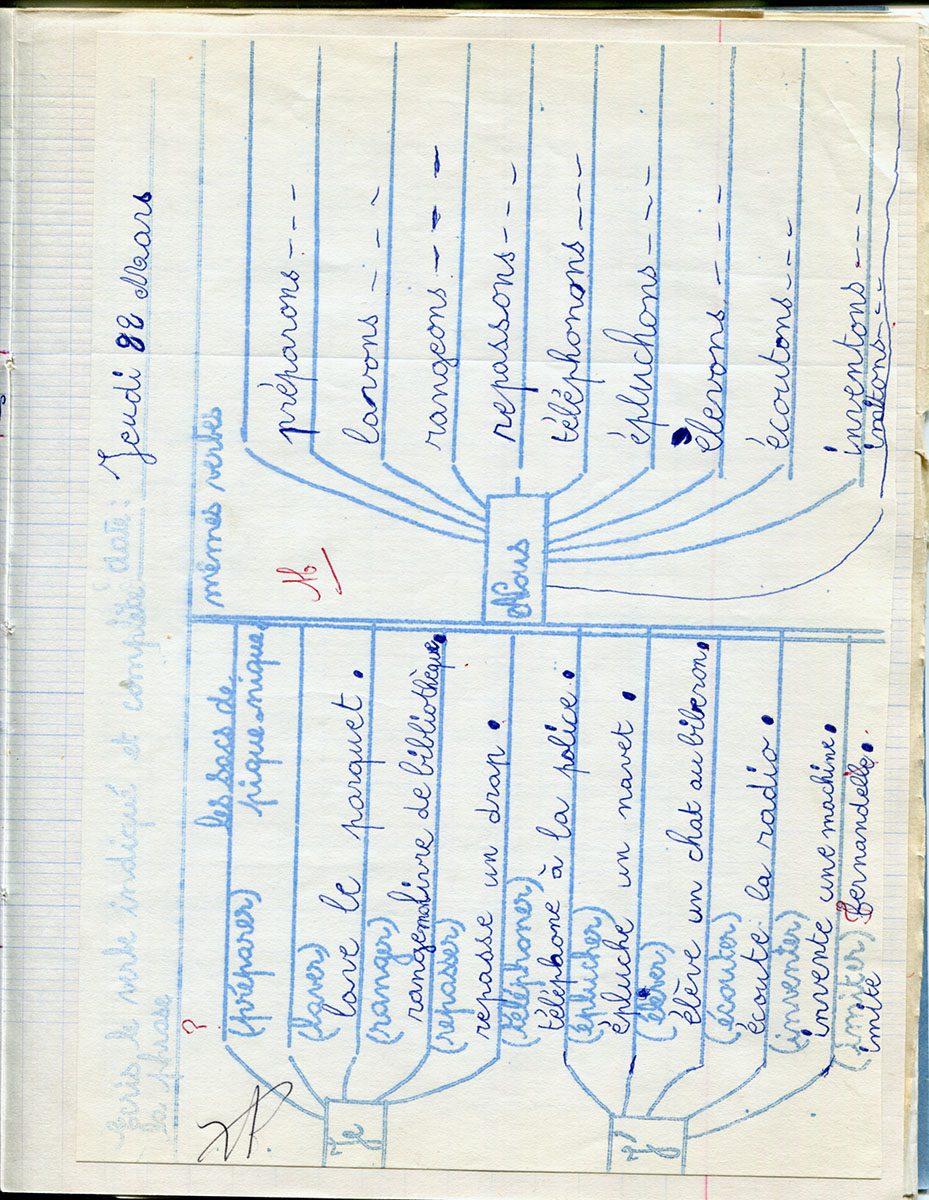 Ecris le verbe indiqué et complète
la phrase
date : Jeudi 22 Maars
?
(préparer) les sacs de
pique.nique.
(laver)
lave le parquet.
(ranger)
range mon livre de bibliothèque.
(repasser)
repasse un drap.
Je
(téléphoner)
téléphone à la police.
(éplucher)
épluche un navet.
élève un chat au biberon.
(écouter)
écoute la radio.
(inventer)
invente une machine.
(imiter)
imite Fernandelle.
J'
mêmes verbes
Nous
préparons---
lavons---
rangeons---
repassons---
téléphonons---
épluchons---
élevons---
écoutons---
inventons---
imitons---